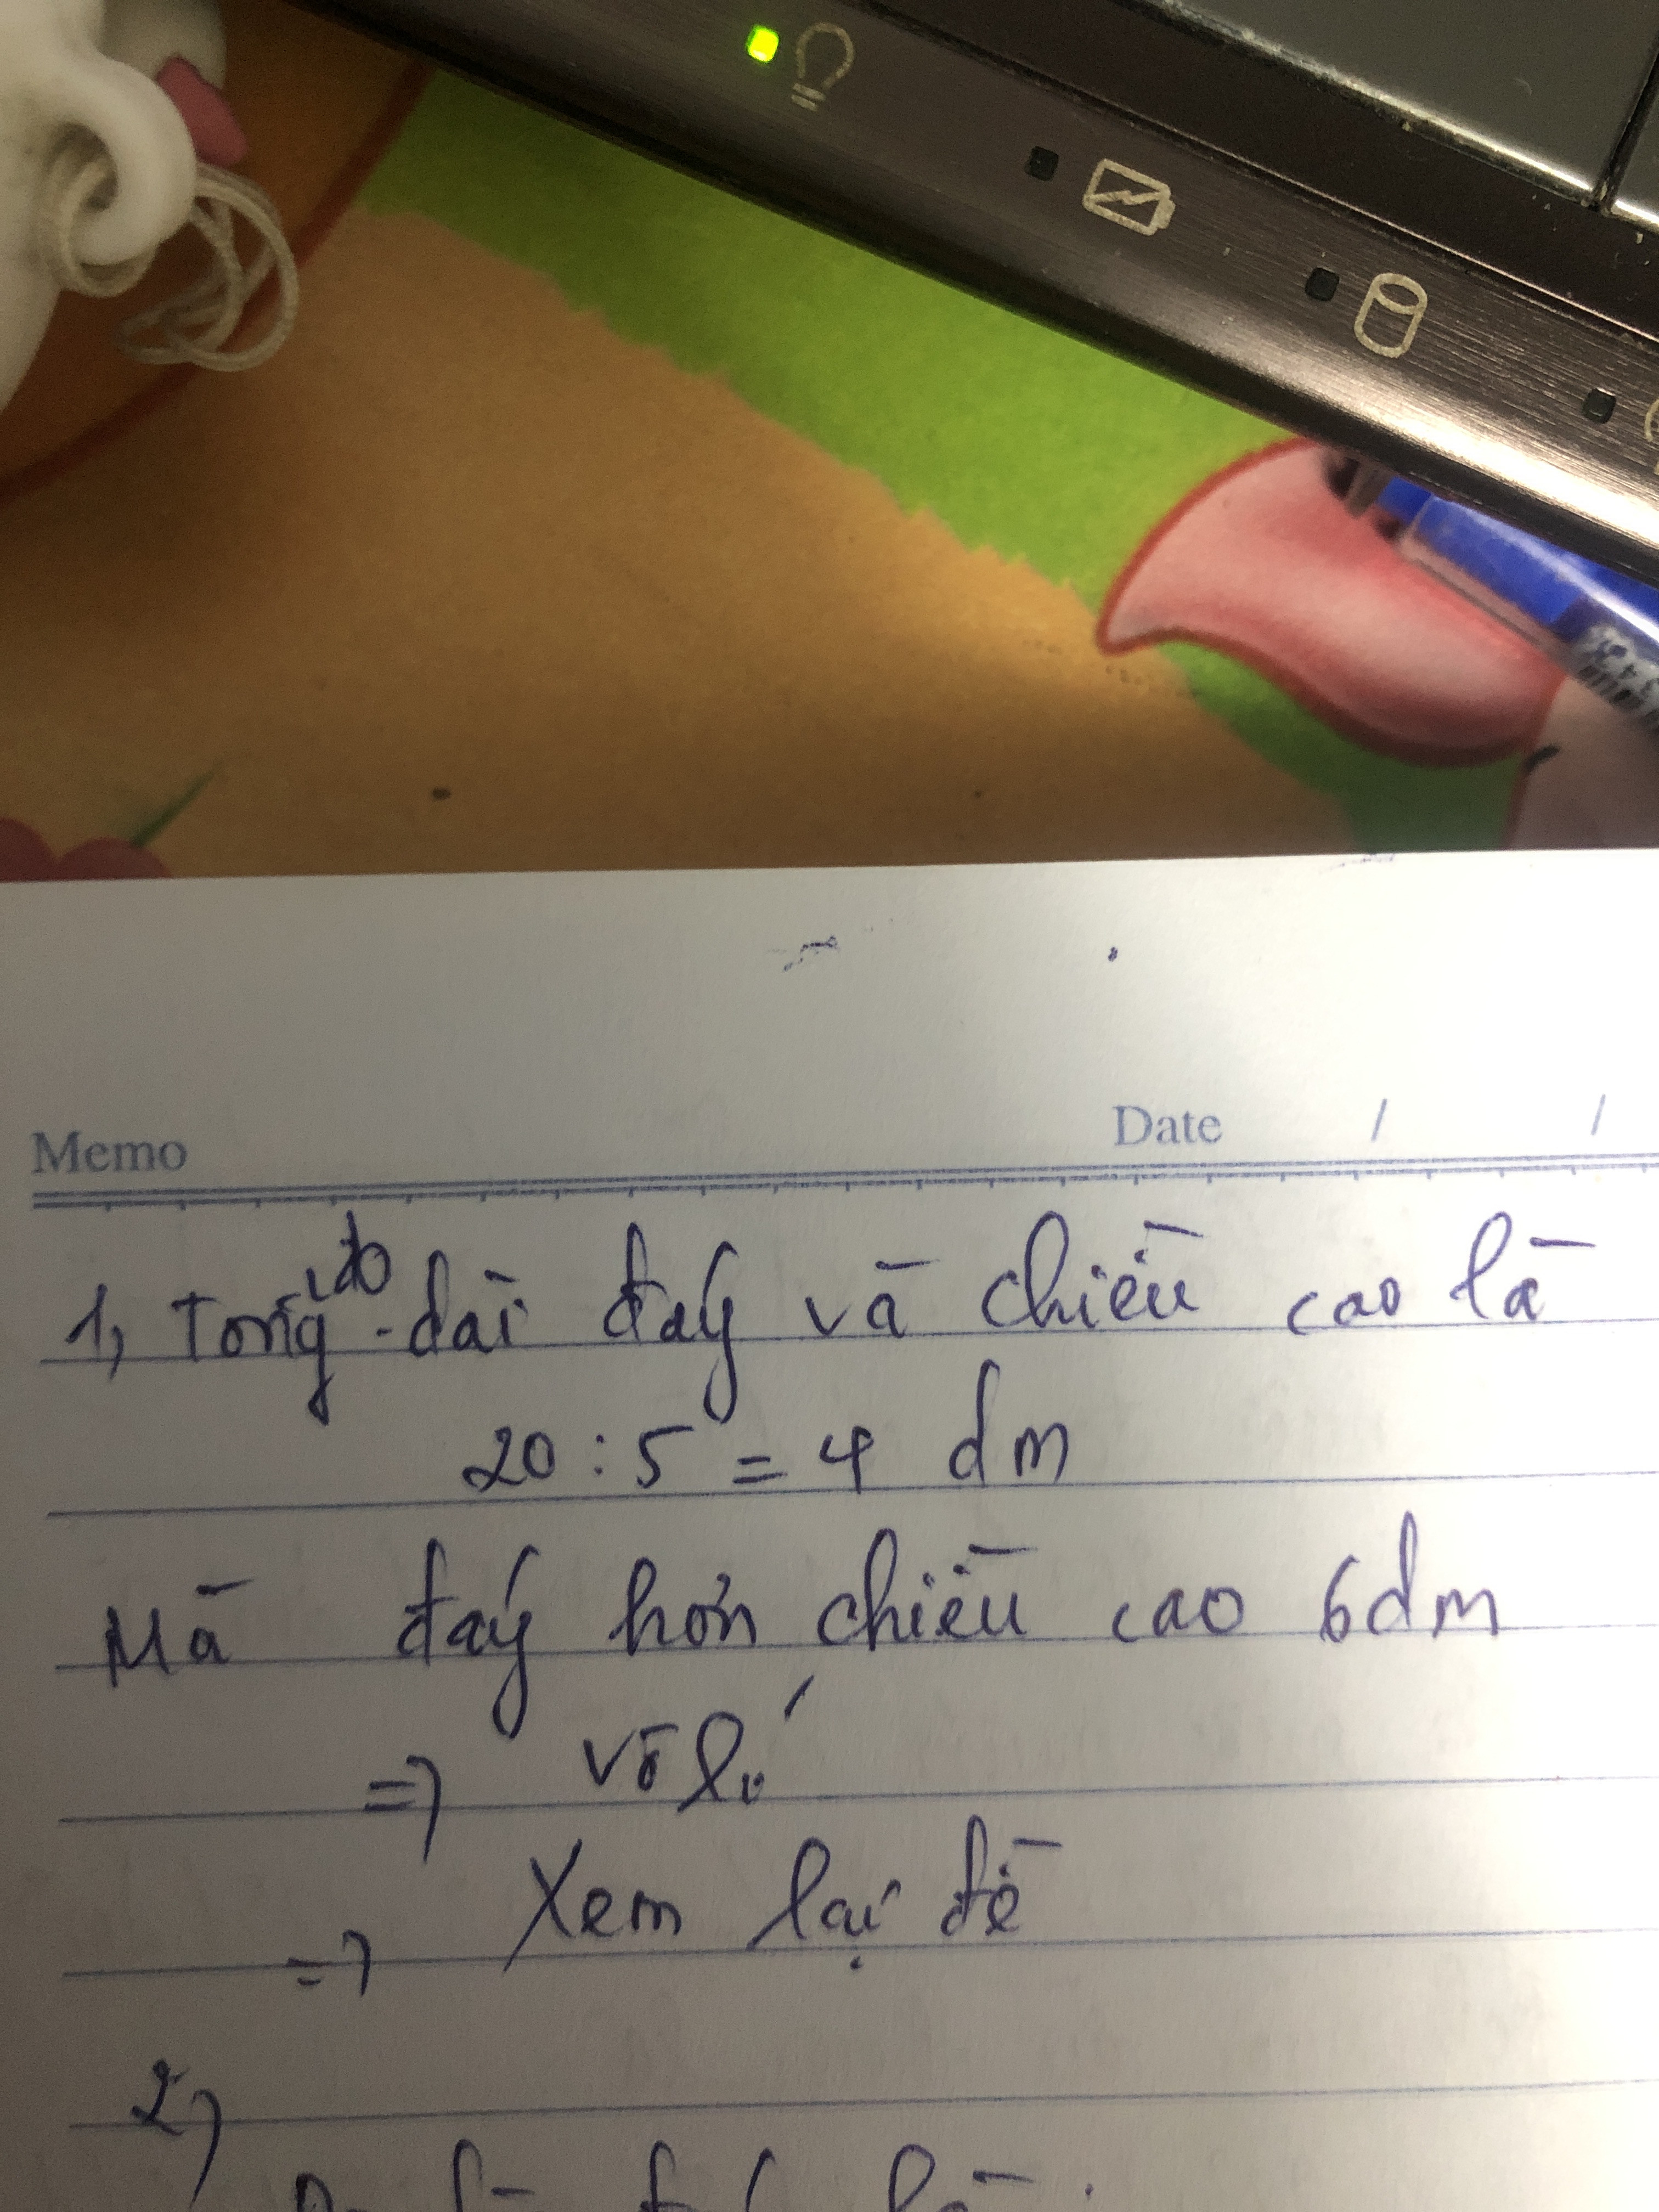 Memo Date / /
1, Tổng độ dài đáy và chiều cao là
20 : 5 = 4 dm
Mà đáy hơn chiều cao 6dm
=> vô lí
=> Xem lại đề
2,